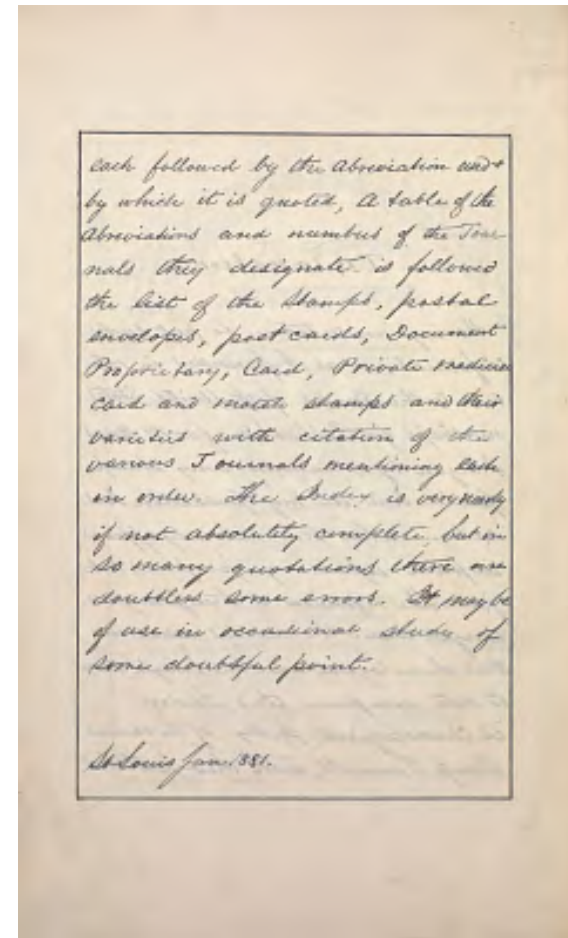 each followed by the Abreviation
by which it is quoted, A table of the
Abreviations and number of the Jour-
nals they designate is followed
the List of the Stamps, postal
envelopes, post cards, Document
Proprietary, Card, Private medicine
card and match stamps and their
varieties with citation of the
various Journals mentioning each
in order. The Index is very nearly
if not absolutely complete, but in
so many quotations there are
doubtless some errors. It may be
of use in occasional study of
some doubtful point.
St Louis Jan. 1881.